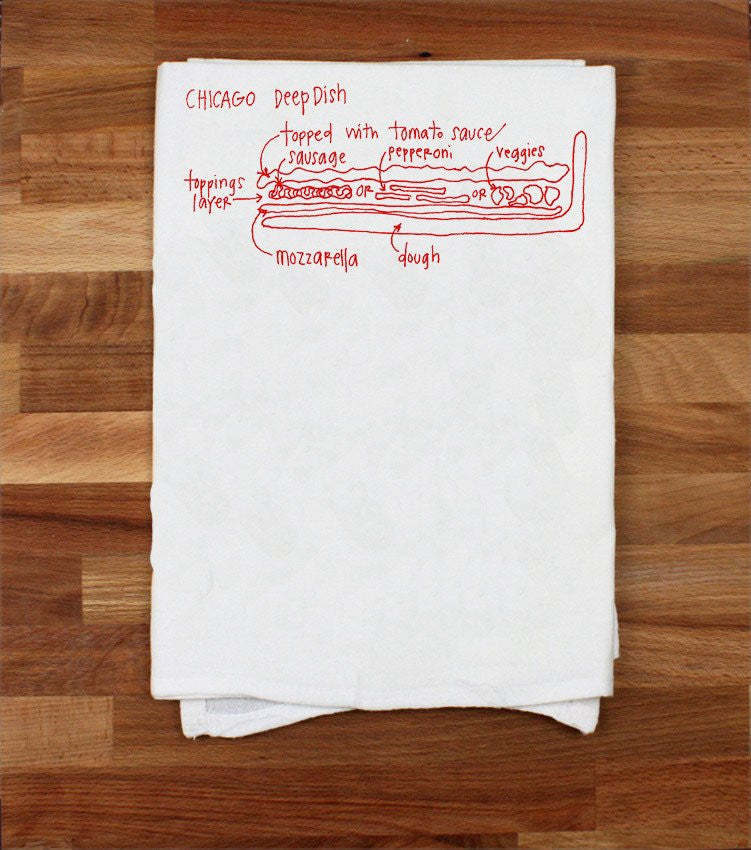 CHICAGO DeepDish
topped with tomato sauce
sausage pepperoni veggies
toppings
layer
OR OR
mozzarella dough